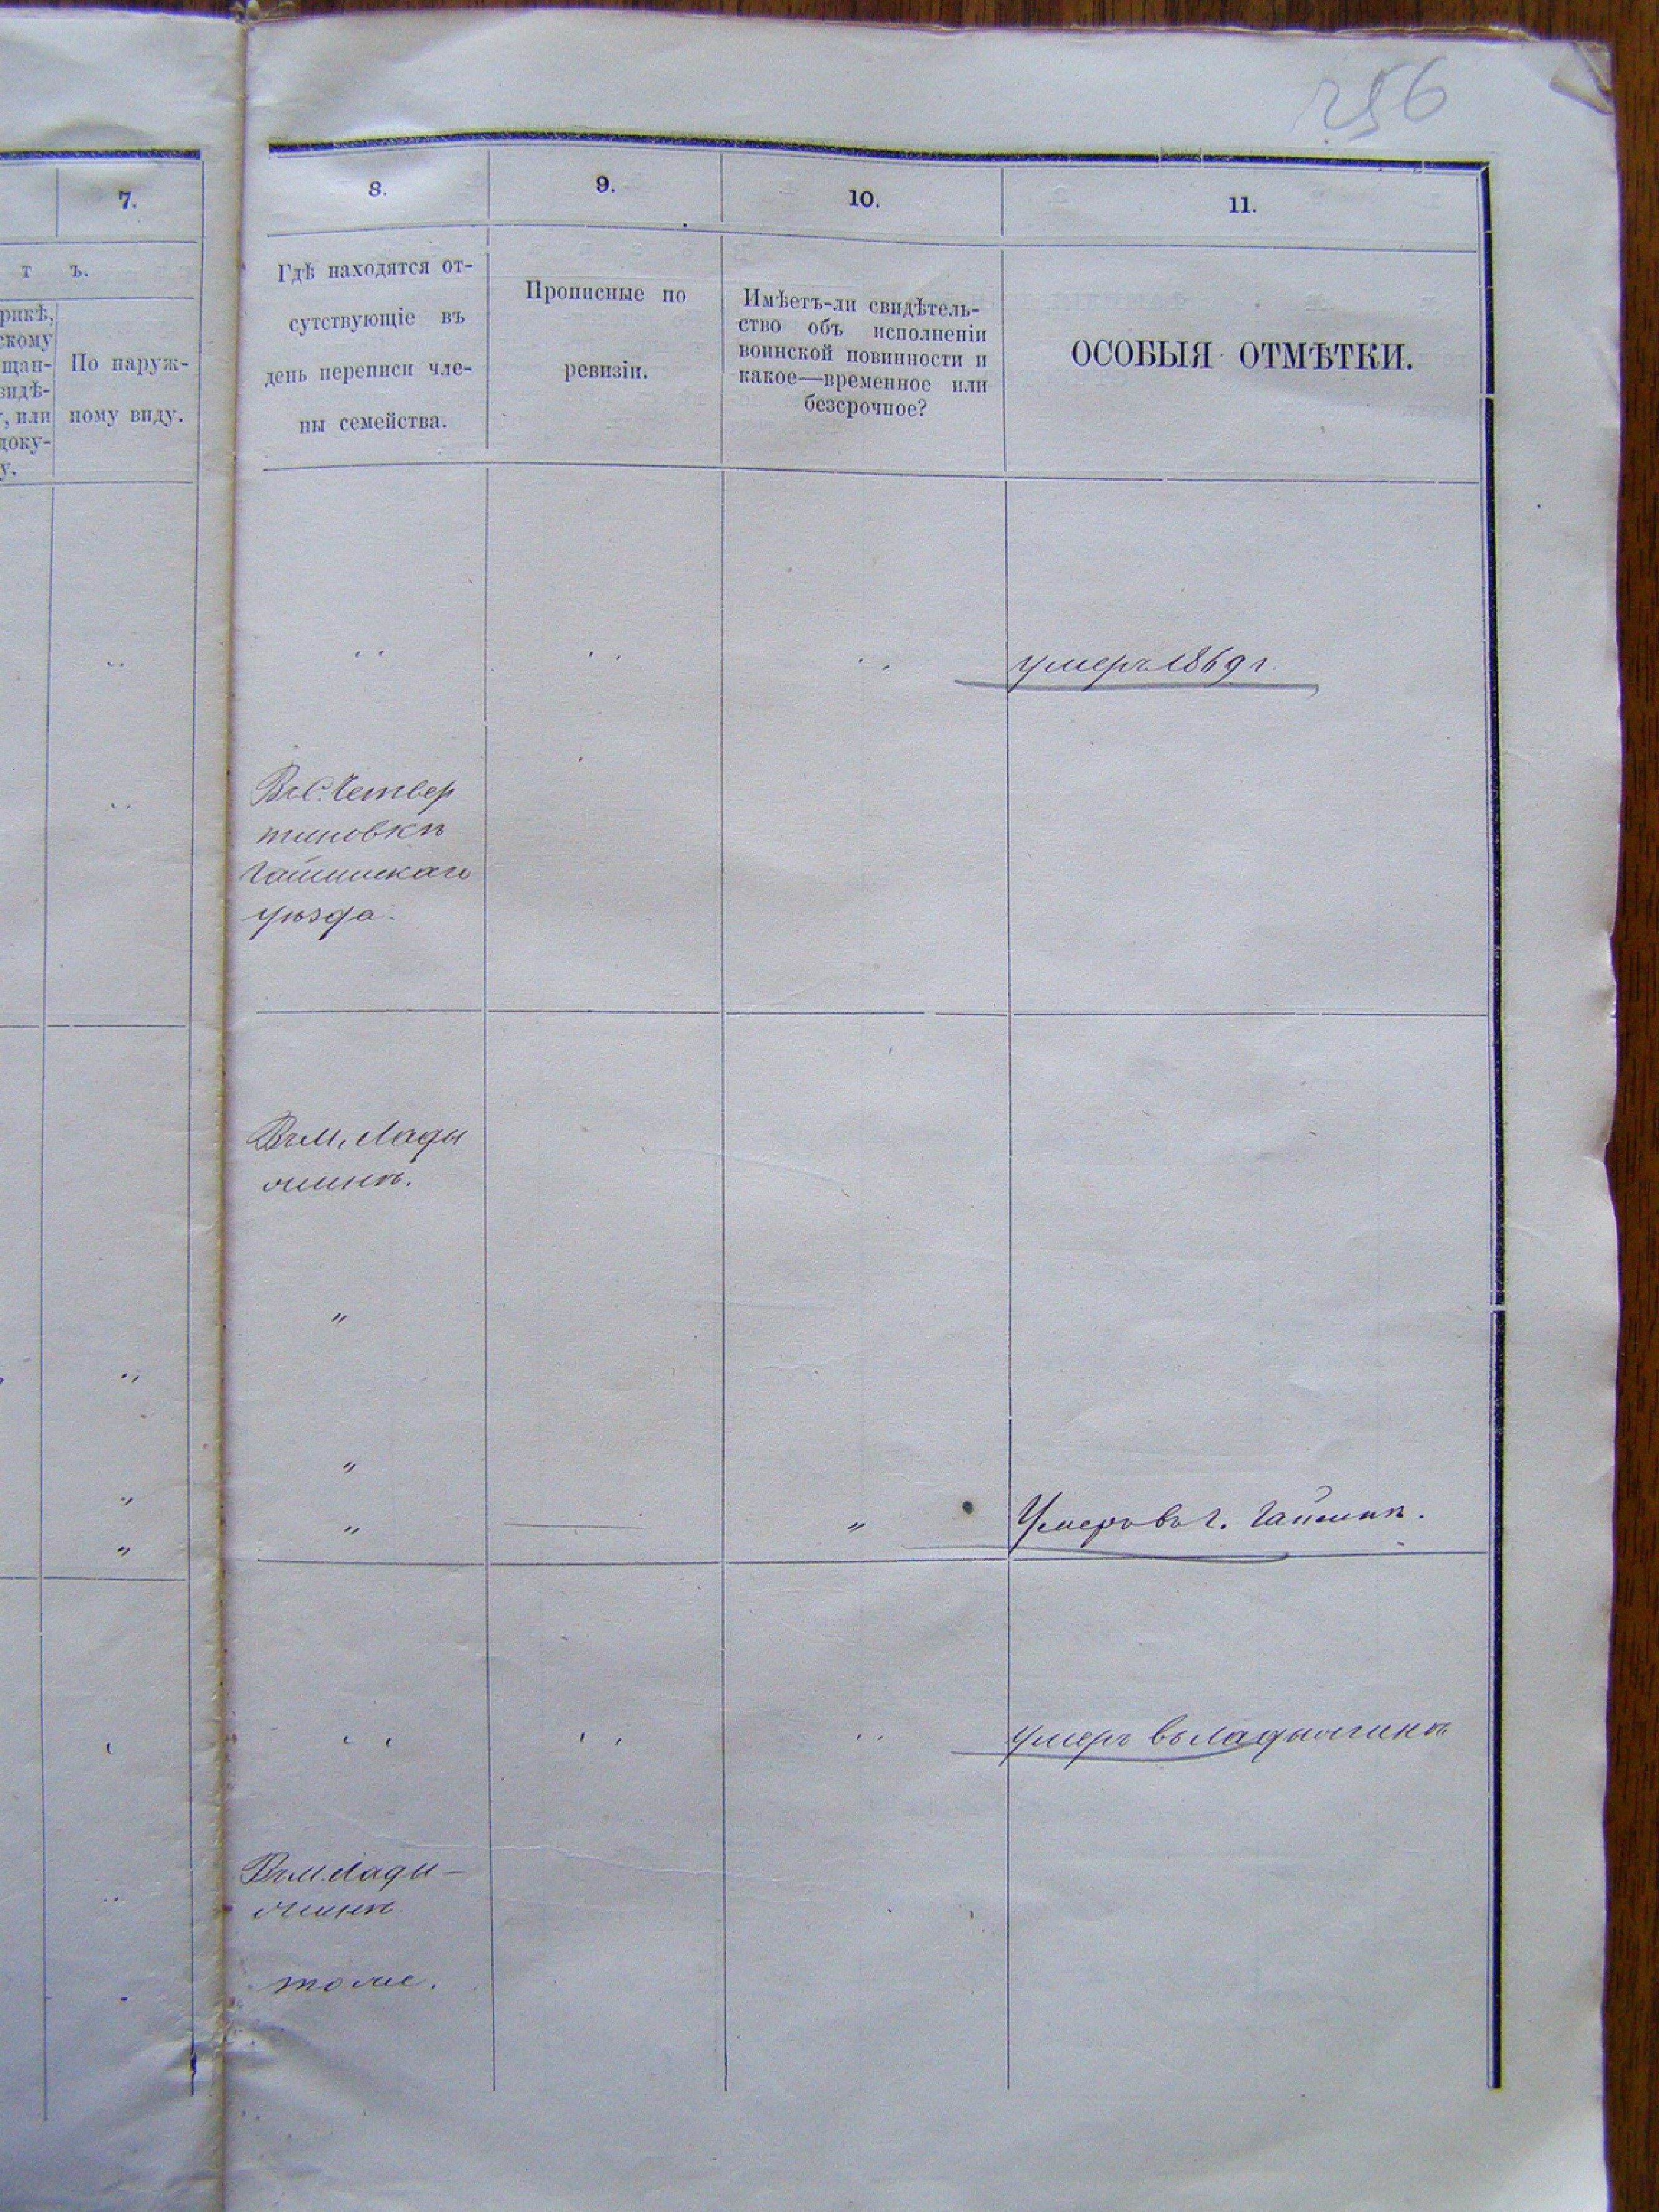 256
7.
8.
9.
10.
11.
т ъ.
рикѣ,
скому
щан-
видѣ-
, или
доку-
у.
По наруж-
ному виду.
Гдѣ находятся от-
сутствующіе въ
день переписи чле-
ны семейства.
Прописные по
ревизіи.
Имѣетъ-ли свидѣтель-
ство объ исполненіи
воинской повинности и
какое—временное или
безсрочное?
ОСОБЫЯ ОТМѢТКИ.
умеръ 1869 г.
Въ С. Четвер
тиновкѣ
Гайсинскаго
уѣзда.
Въ М. Лады
жинѣ.
"
"
"
"
Умеръ въ г. Гайсинѣ.
умеръ въ Ладыжинѣ
Въ М. Лады-
жинѣ
тоже.